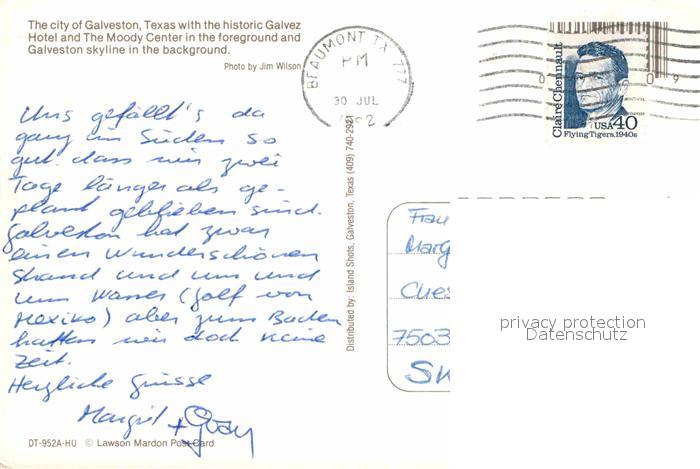 The city of Galveston, Texas with the historic Galvez
Hotel and The Moody Center in the foreground and
Galveston skyline in the background.
Photo by Jim Wilson
BEAUMONT TX 777
PM
30 JUL
Claire Chennault
USA 40
Flying Tigers, 1940s
Uns gefällt's da
ganz im Süden so
gut, dass wir zwei
Tage länger als ge-
plant geblieben sind.
Galveston hat zwar
einen wunderschönen
Strand und um und
um Wasser (Golf von
Mexiko) aber zum Baden
hatten wir doch keine
Zeit.
Herzliche Grüsse
Margrit +
DT-952A-HU © Lawson Mardon Post Card
Distributed by: Island Shots, Galveston, Texas (409) 740-2921
Frau
Marg
Ches
7503
SW
privacy protection
Datenschutz